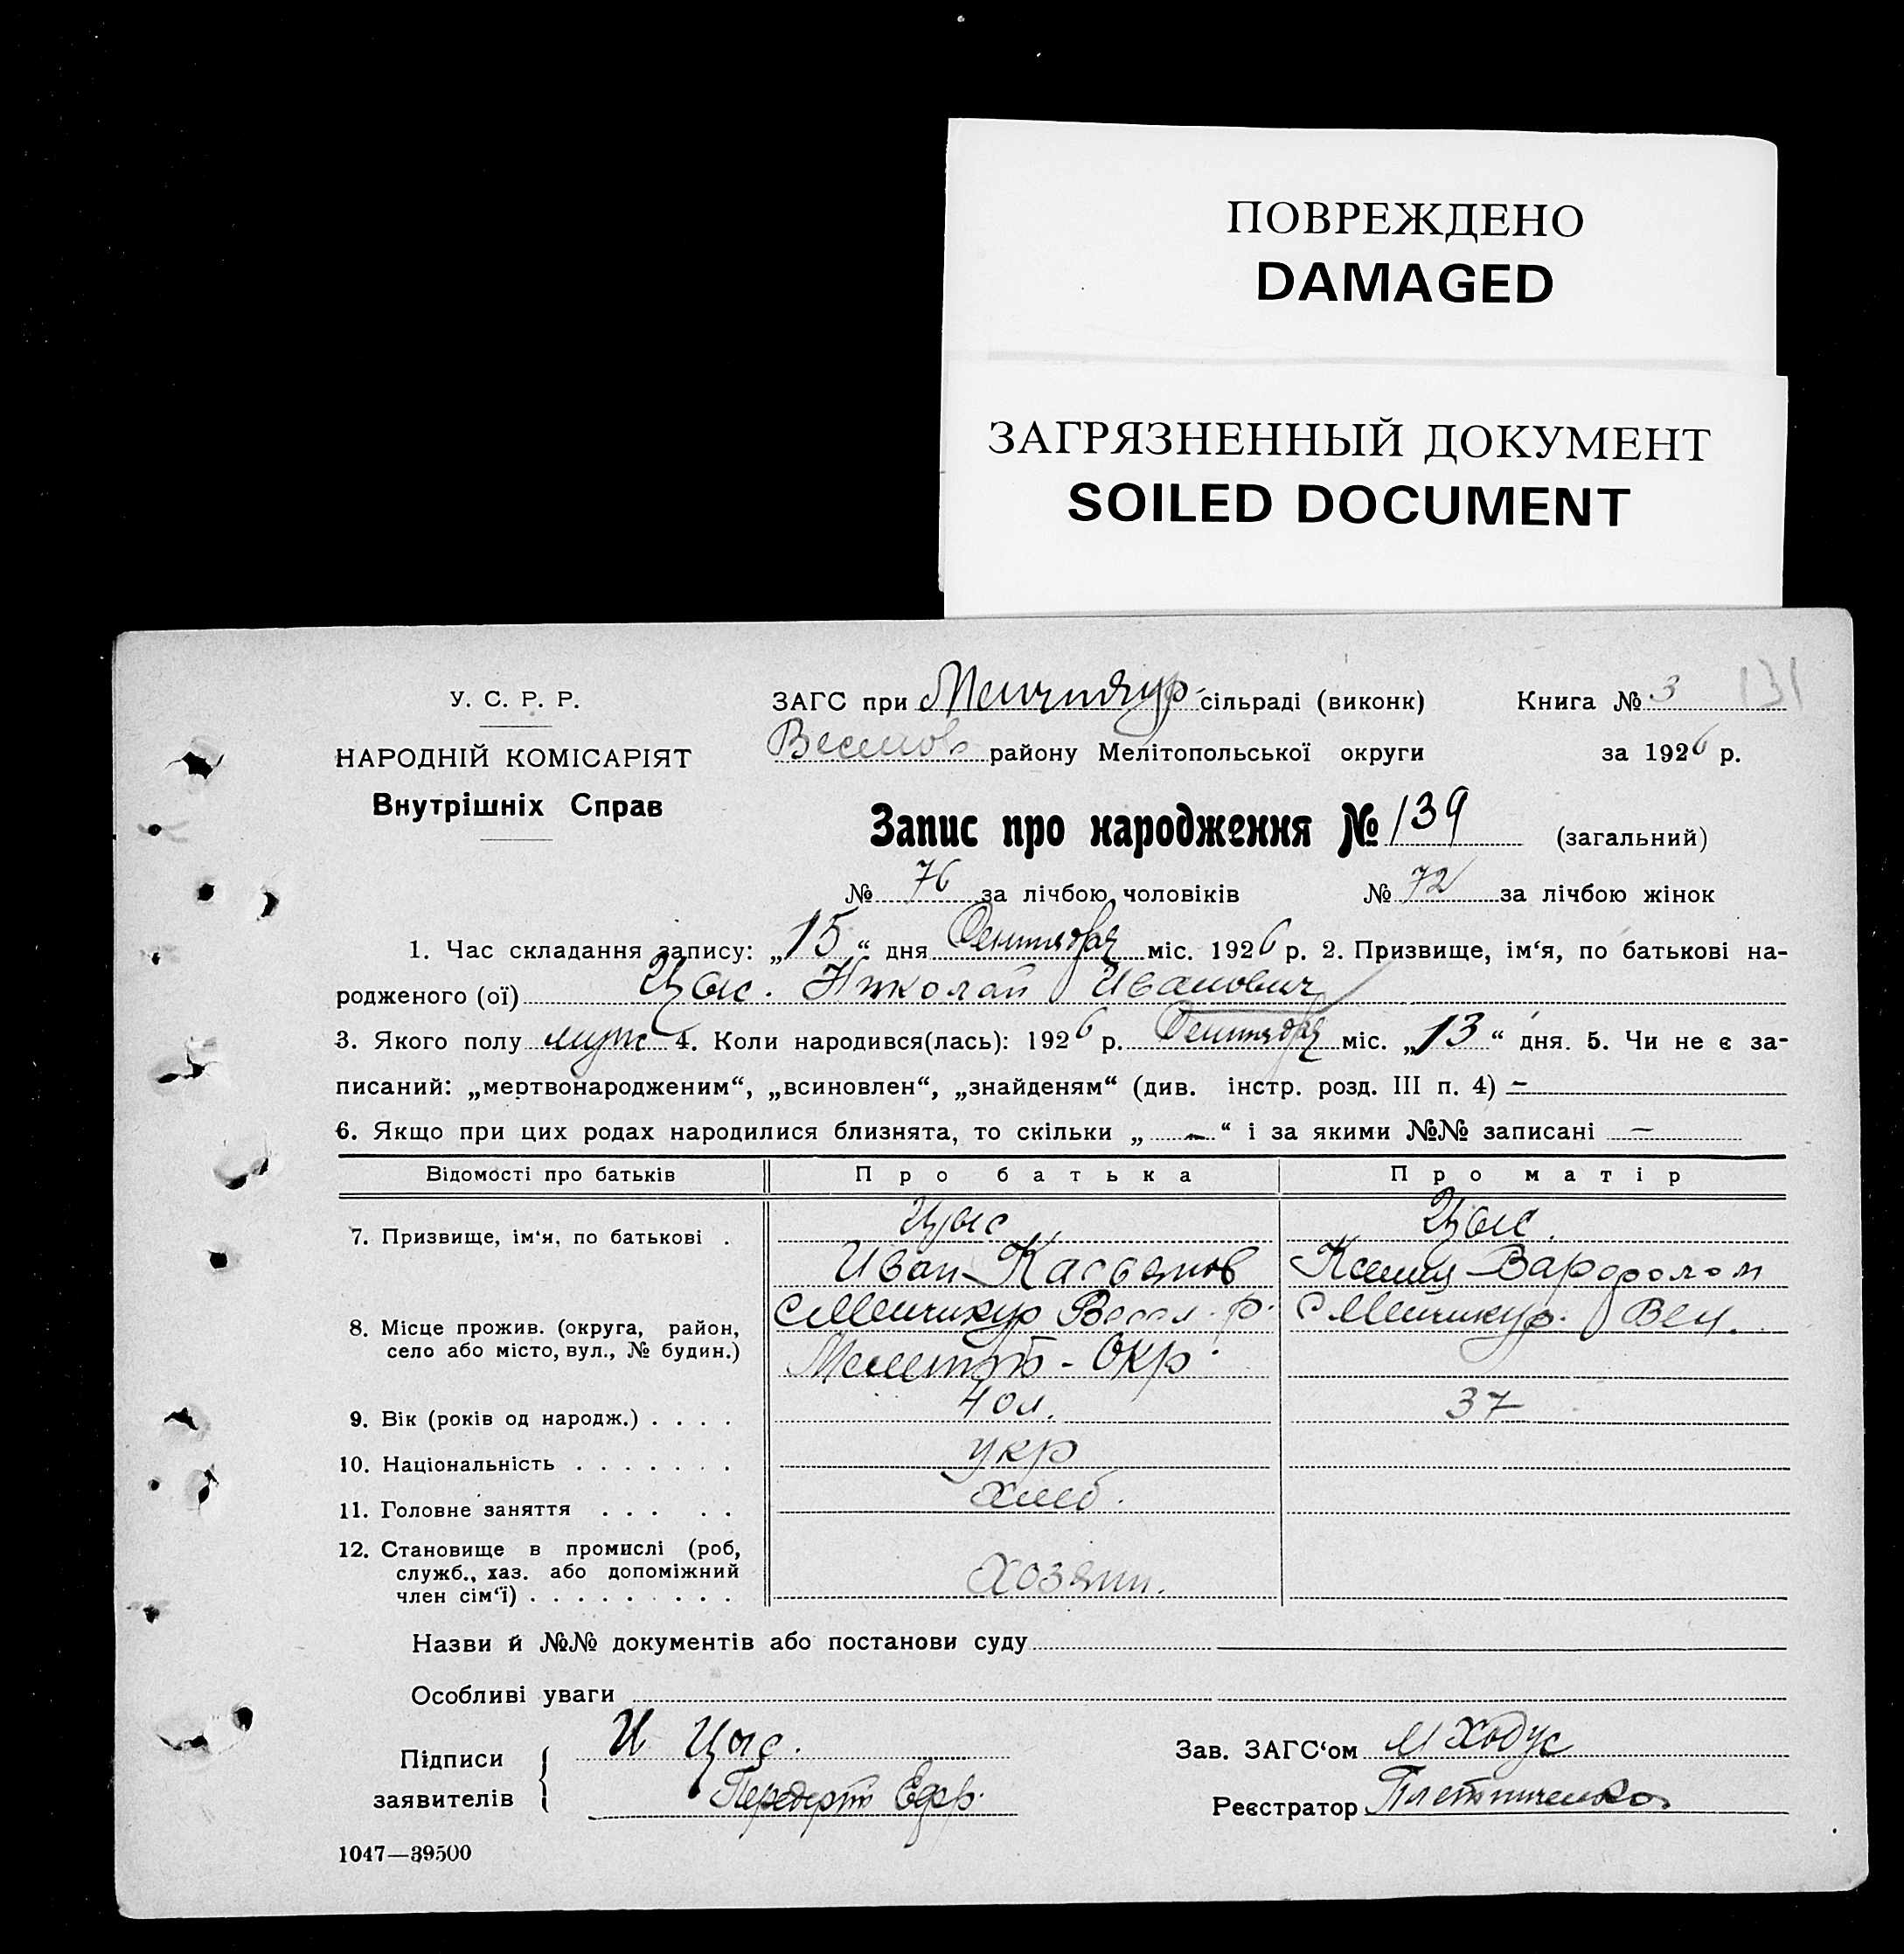 ПОВРЕЖДЕНО
DAMAGED
ЗАГРЯЗНЕННЫЙ ДОКУМЕНТ
SOILED DOCUMENT
131
У. С. Р. Р.
НАРОДНІЙ КОМІСАРІЯТ
Внутрішніх Справ
ЗАГС при Менчикур сільраді (виконк) Книга № 3
Веселов району Мелітопольської округи за 1926 р.
Запис про народження № 139 (загальний)
№ 76 за лічбою чоловіків № 72 за лічбою жінок
1. Час складання запису: „15“ дня Сентября міс. 1926 р. 2. Призвище, ім‘я, по батькові на-
родженого (ої) Цыс. Николай Иванович
3. Якого полу муж 4. Коли народився(лась): 1926 р. Сентября міс. „13“ дня. 5. Чи не є за-
писаний: „мертвонародженим“, „всиновлен“, „знайденям“ (див. інстр. розд. III п. 4) –
6. Якщо при цих родах народилися близнята, то скільки „ – “ і за якими №№ записані –
Відомості про батьків Про батька Про матір
7. Призвище, ім‘я, по батькові . Цыс Цыс.
Иван Касьянов Ксения Варфолом
8. Місце прожив. (округа, район, село або місто, вул., № будин.) с Менчикур Весел. р. с Менчикур. Вес.
Мелитоп - Окр.
9. Вік (років од народж.) . . . . 40 л. 37
10. Національність . . . . . . . укр
11. Головне заняття . . . . . хлеб.
12. Становище в промислі (роб, служб., хаз. або допоміжний член сім‘ї) . . . . . . . . . хозяин.
Назви й №№ документів або постанови суду
Особливі уваги
Підписи заявителів И Цыс. Зав. ЗАГС‘ом М Ходус
Ефр. Реєстратор
1047—39500